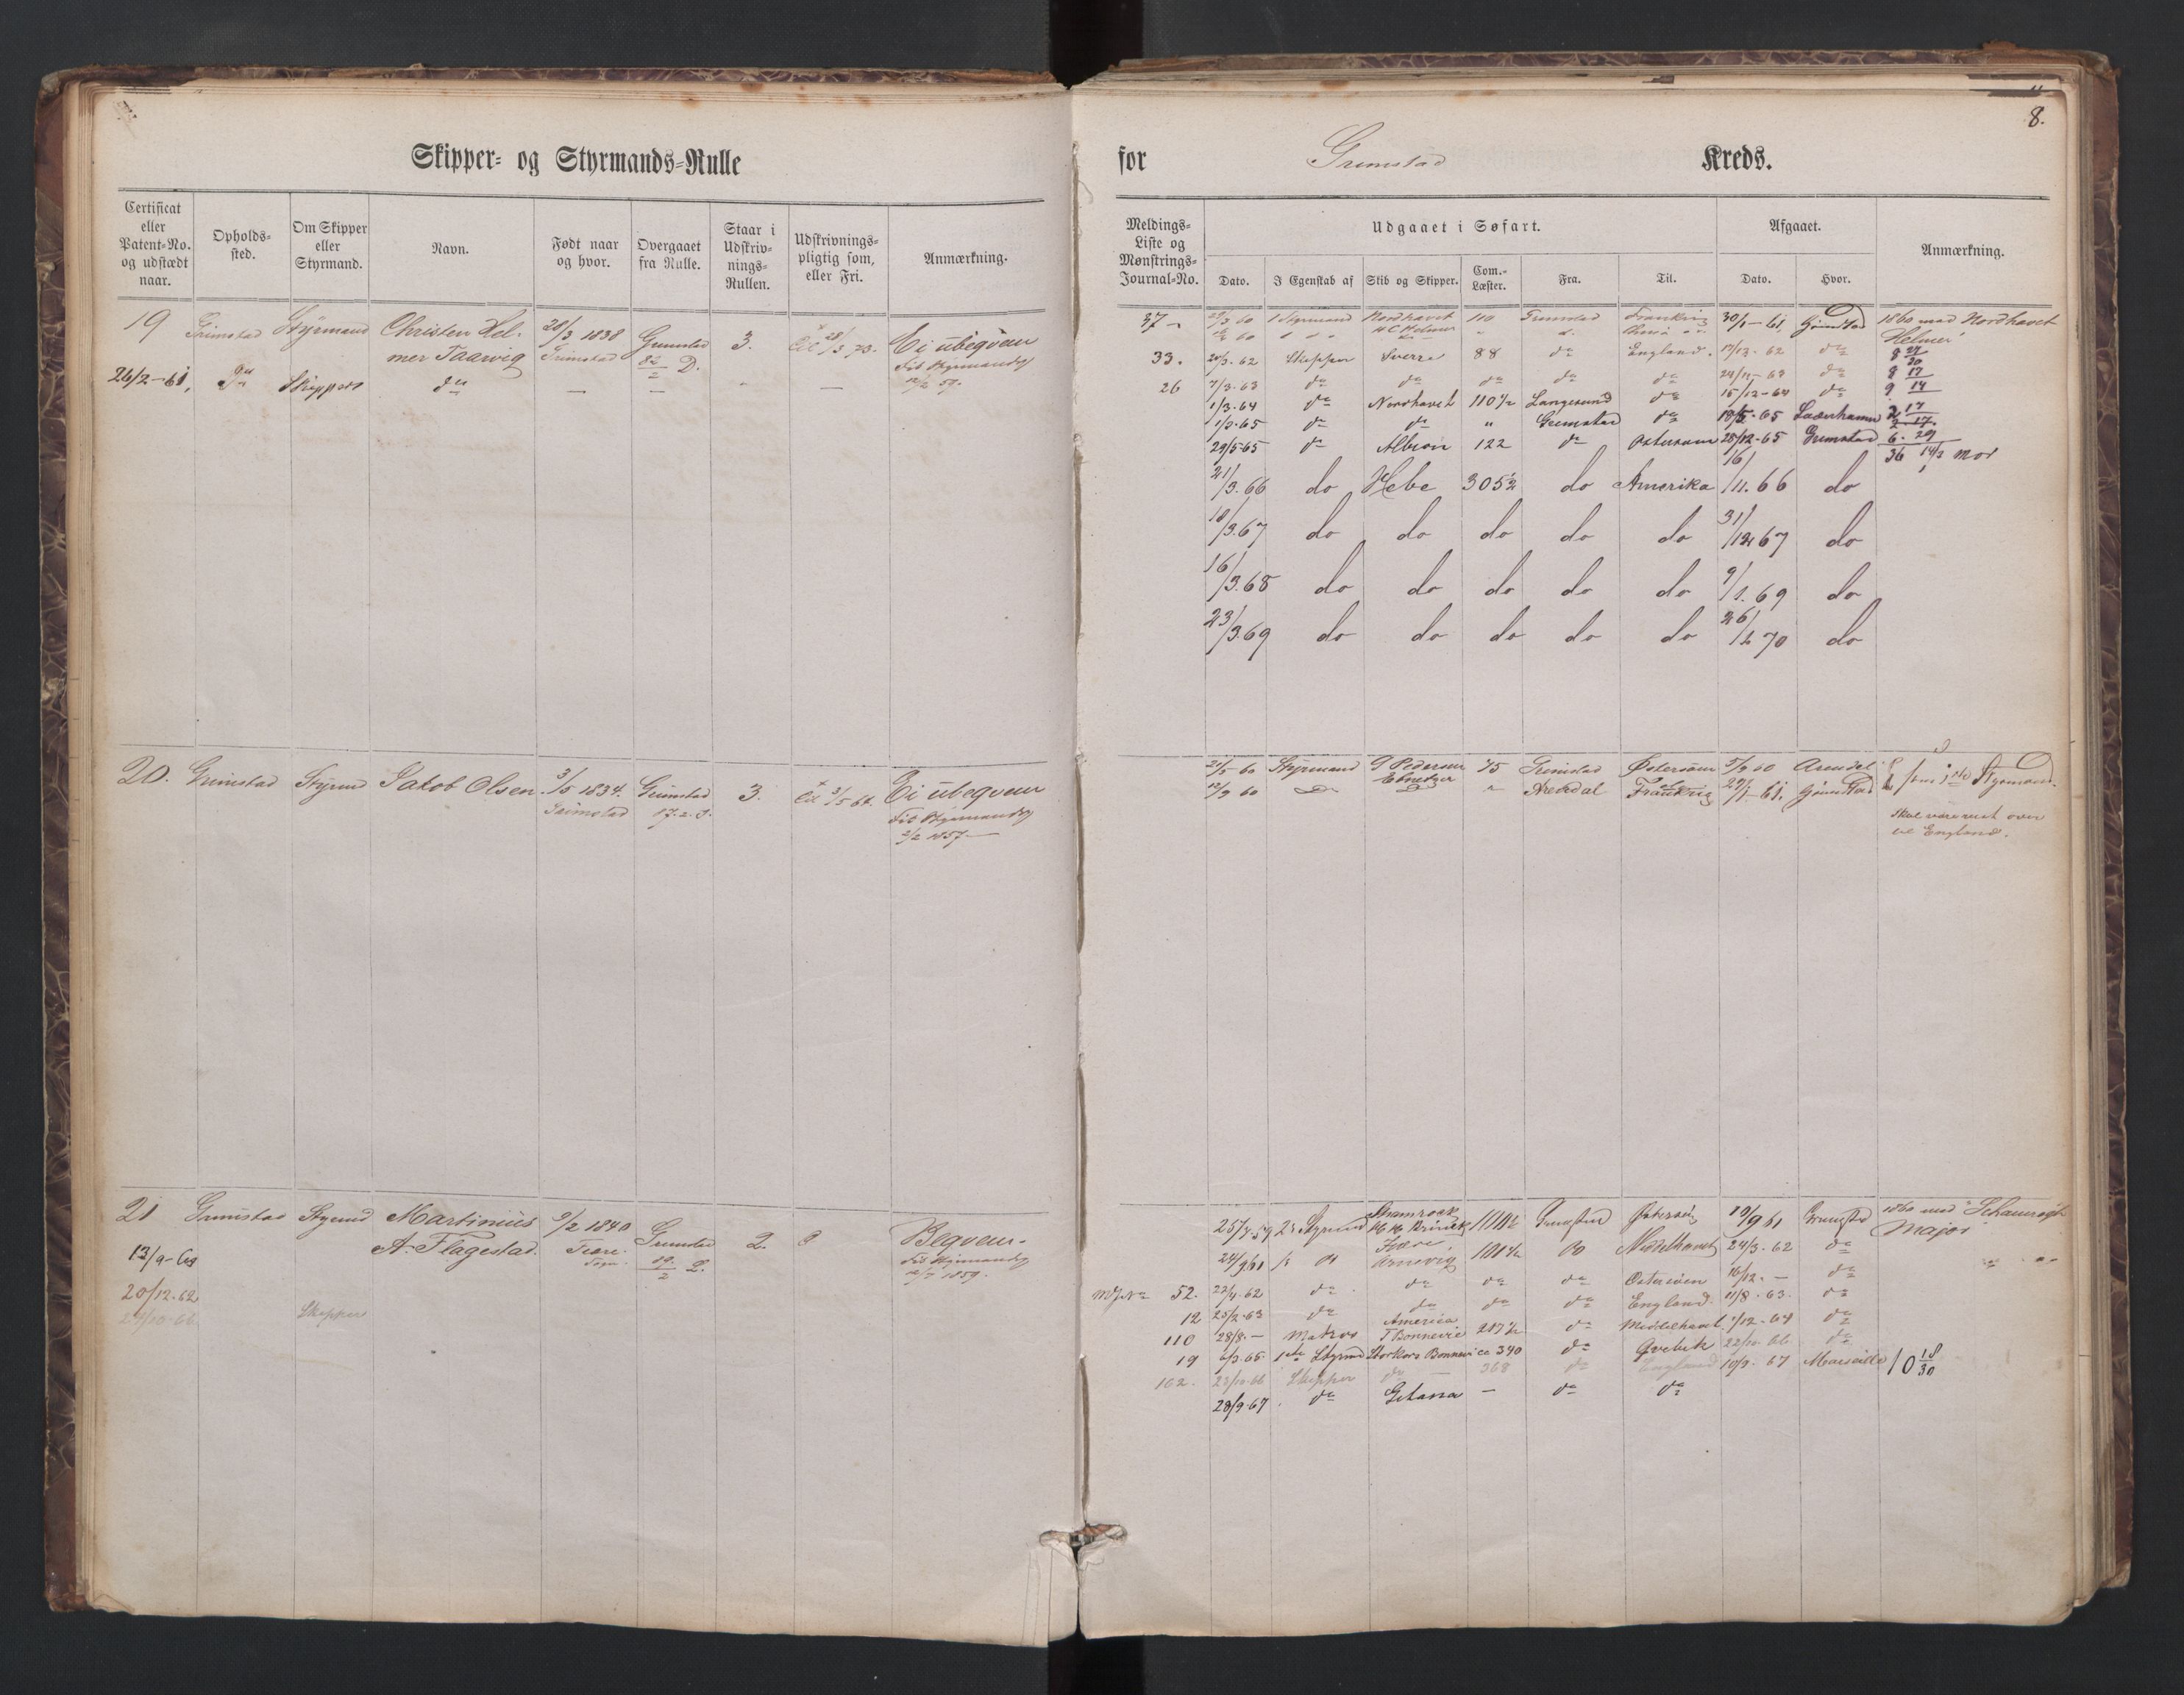 8.
Skipper- og Styrmands-Rulle for Grimstad Kreds.
Certificat eller Patent-No. og udstædt naar. | Opholds-sted. | Om Skipper eller Styrmand. | Navn. | Født naar og hvor. | Overgaaet fra Rulle. | Staar i Udskriv-nings-Rullen. | Udskrivnings-pligtig som, eller Fri. | Anmærkning.
19 Grimstad Styrmand Christen Hel- 28/3 1838 Grimstad 3. 28/3 73. Ei ubeqvem
mer Taarvig Grimstad 82/2 D. Fit Styrmands
26/2-61. Do Skipper do — — — 12/2 57.
20. Grimstad Styrmd Jakob Olsen 3/5 1834. Grimstad 3. 3/5 64. Ei ubeqvem
Grimstad 17.2.D. Fit Styrmands
2/2 1857
21 Grimstad Styrmd Martinius 9/2 1840 Grimstad 2. Beqvem.
A. Flagestad. 19/2 D. Fit Styrmands
13/9-60 1859.
20/12-62
24/10-66 Skipper
Meldings-Liste og Mønstrings-Journal-No. | Udgaaet i Søfart. | Afgaaet. | Anmærkning.
Dato. | I Egenskab af | Skib og Skipper. | Com.-Læster. | Fra. | Til. | Dato. | Hvor.
37 60 Styrmand Nordhavet 110 Grimstad Frankrig 30/1-61. Grimstad 1860 med Nordhavet
60 H C Helmer Helmer
33. 20/3.62 Skipper Sverre 88 do England. 17/12-62 do 8 27/30
26 7/3.63 do do do do do 24/11-63 do 8 17
1/3.64 do Nordhavet 110½ Langesund do 15/12-64 do 9 14
1/3.65 do do " Grimstad do 18/5-65 2 17
29/5-65 do Albion 122 do Østersøen 28/12-65 Grimstad 6. 29
36 14/2 Mdr
21/3.66 do Hebe 305½ do Amerika 16/11.66 do
18/3.67 do do do do do 31/12 67 do
16/3.68 do do do do do 9/1.69 do
23/3.69 do do do do do 26/2 70 do
21/5 60 Styrmand G Pedersen 75 Grimstad Østersøen 5/9 60 Arendal
12/9 60 do Ebenetzer " Arendal Frankrig 29/1-61. Grimstad som 1ste Styrmand.
Skal være reist over
til England.
25/7 59 2d Styrmd Shamrock 101½ Grimstad Østersø 19/9 61 Grimstad 1860 med Schamrogh
Major
24/9 61 Arnevig 101½ Do Middelhavet 24/3.62 do
52. 22/4.62 do do do do Østersøen 16/12.— do
12 25/2-63 do do do do England. 11/8-63. do
110 28/8.— Matros America 217½ do Middelhavet 1/12-64 do
T Bonnevie
19 6/3.65. 1ste Styrmd Storkors Bonnevie 340 do Qvebek 22/10-66 do
162. 23/10-66 Skipper do — 368 do England 10/9.67 Marseille 10 18/30
28/9-67 do Gitana — do do